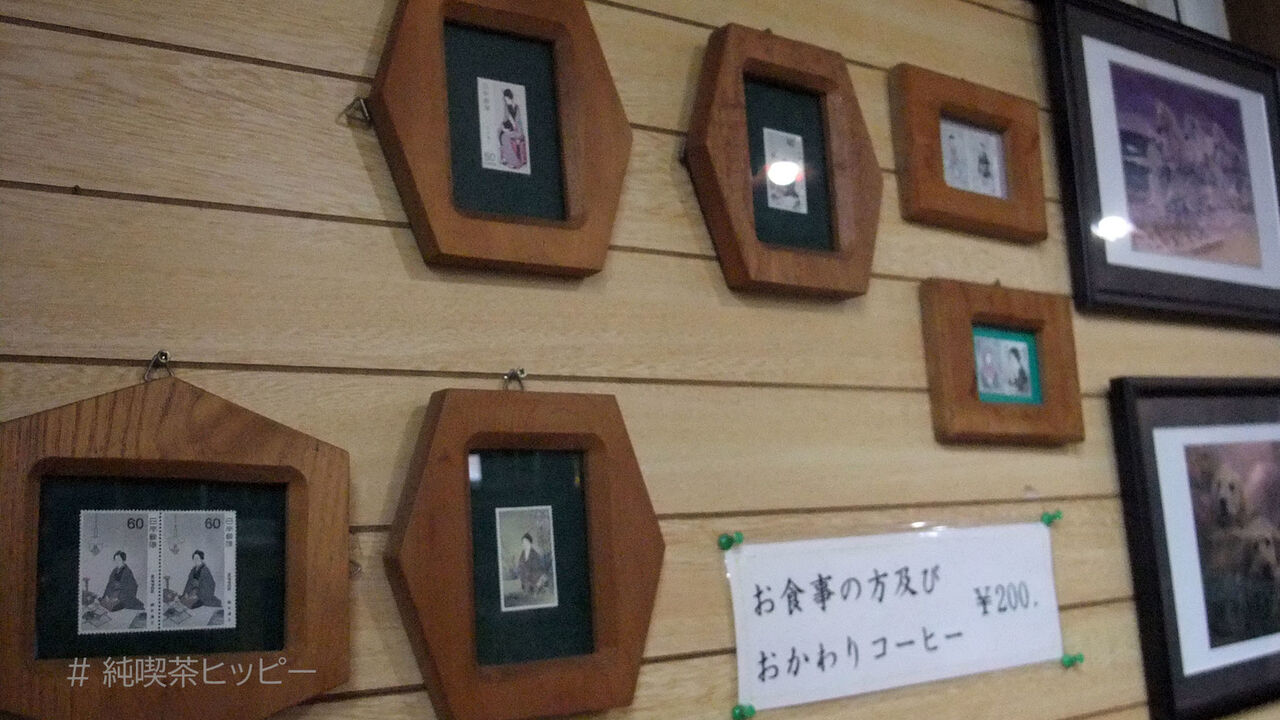 60
60 日本郵便
60 日本郵便
お食事の方及び ¥200.
おかわりコーヒー
# 純喫茶ヒッピー